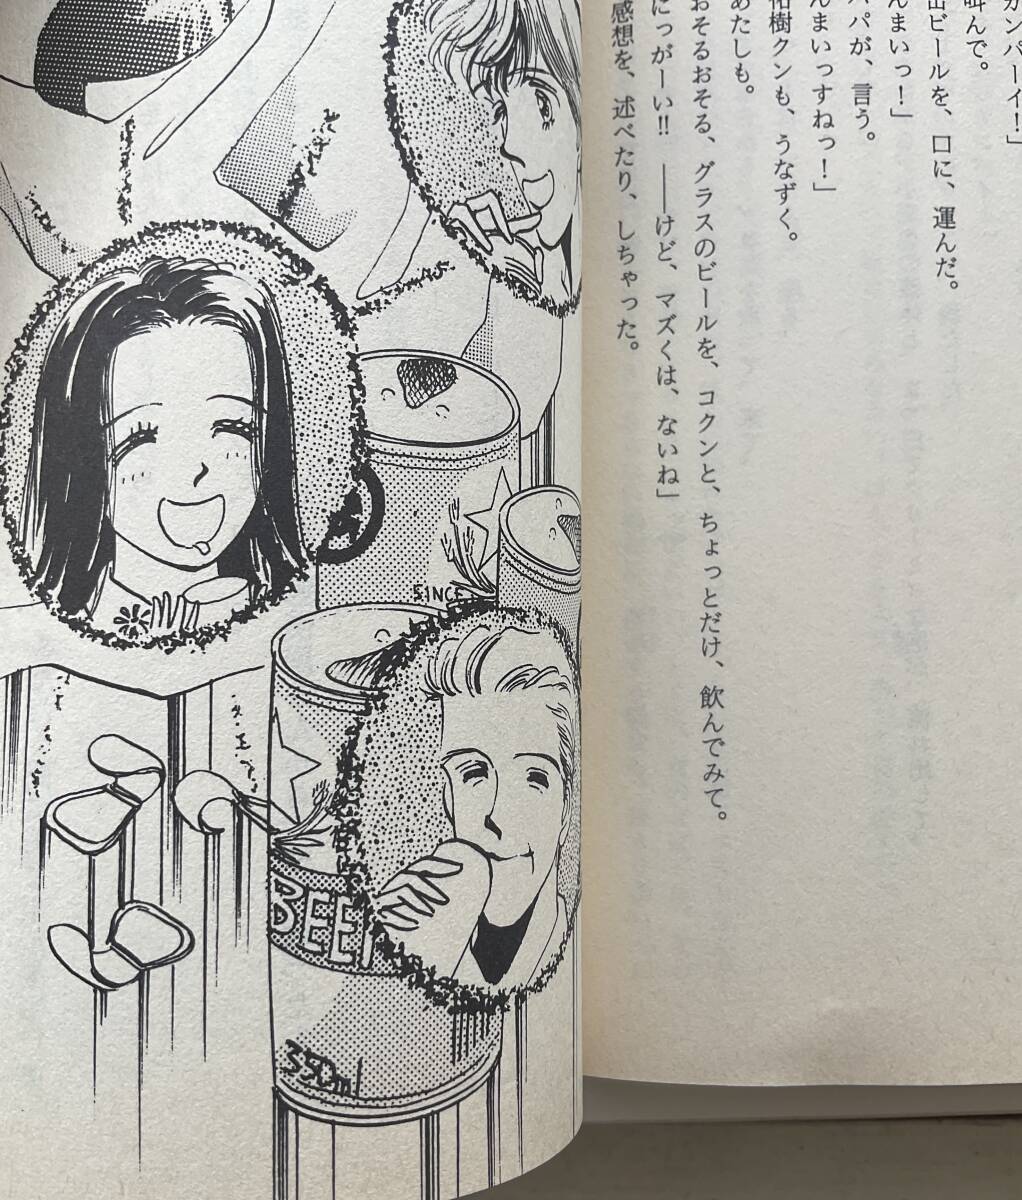 カンパーイ！」
叫んで。
缶ビールを、口に、運んだ。
んまいっ！」
パパが、言う。
んまいっすねっ！」
祐樹クンも、うなずく。
あたしも。
おそるおそる、グラスのビールを、コクンと、ちょっとだけ、飲んでみて。
にっがーい!! ――けど、マズくは、ないね」
感想を、述べたり、しちゃった。
SINCE
BEE
350ml